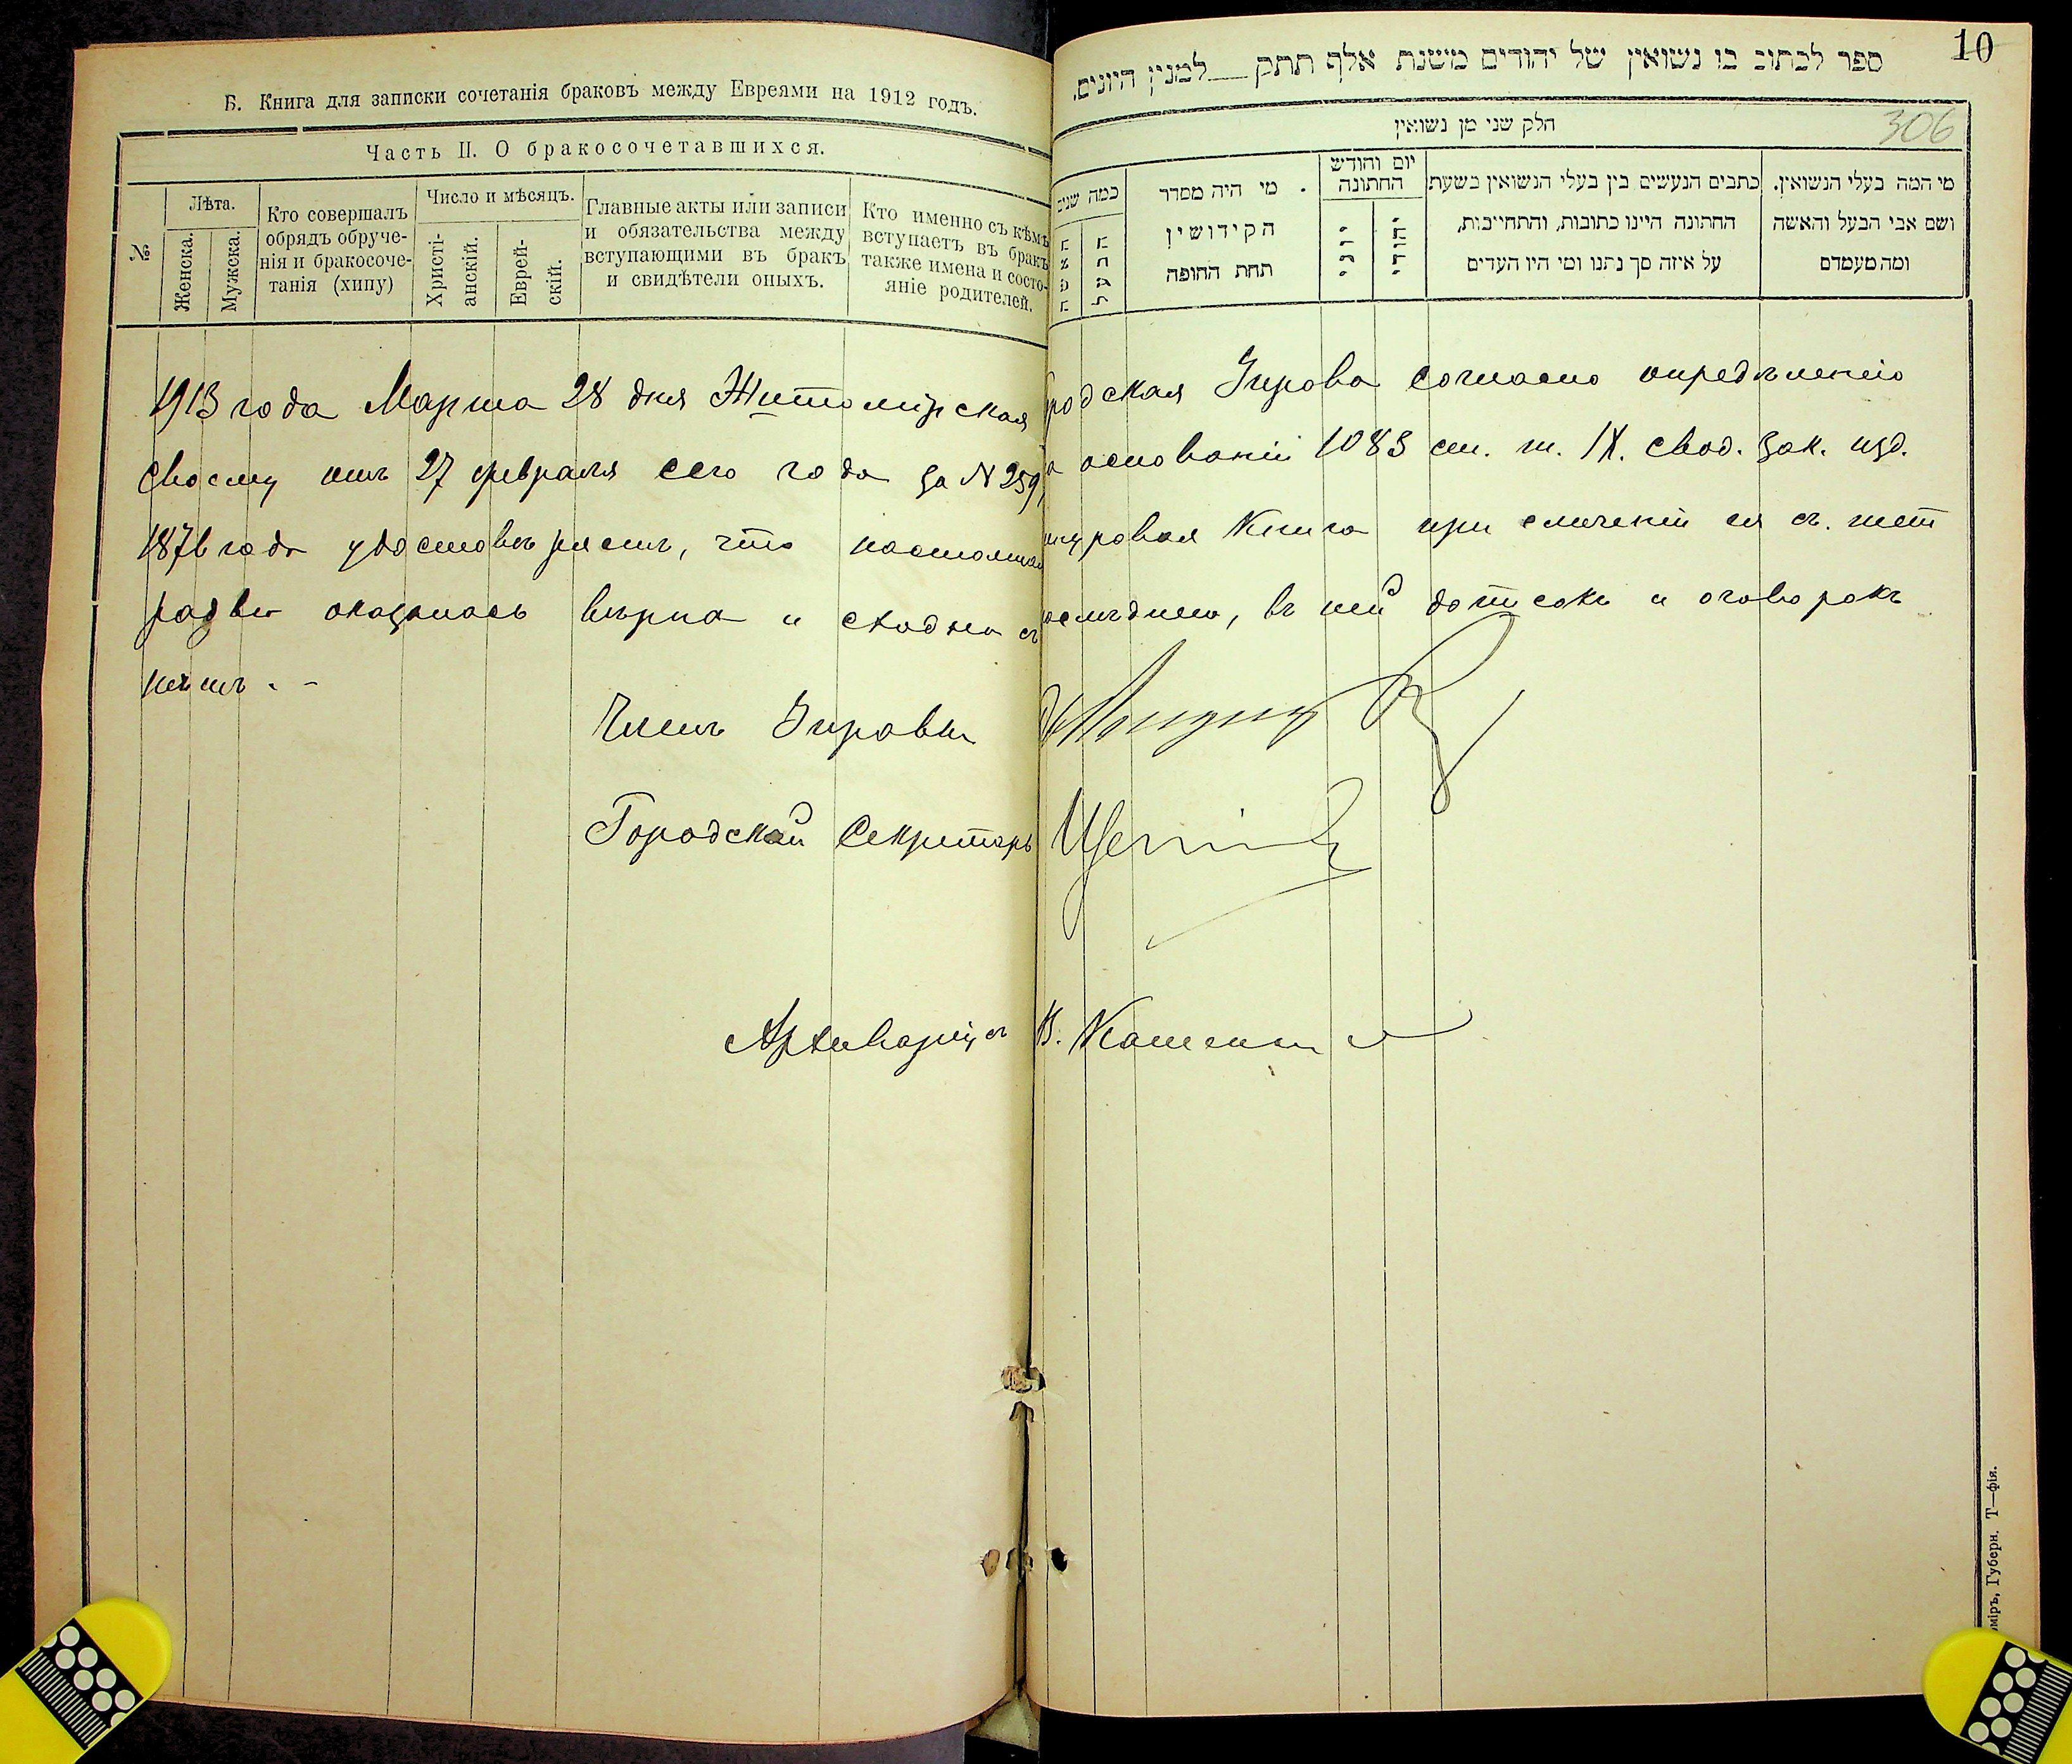 Б. Книга для записки сочетанія браковъ между Евреями на 1912 годъ.
Часть II. О бракосочетавшихся.
№
Лѣта.
Женска.
Мужска.
Кто совершалъ
обрядъ обруче-
нія и бракосоче-
танія (хипу)
Число и мѣсяцъ.
Христі-
анскій.
Еврей-
скій.
Главные акты или записи
и обязательства между
вступающими въ бракъ
и свидѣтели оныхъ.
Кто именно съ кѣмъ
вступаетъ въ бракъ
также имена и состо-
яніе родителей.
10
306
ספר לכתוב בו נשואין של יהודים משנת אלף תתק למנין היונים.
חלק שני מן נשואין
כמה שנים
מי היה מסדר
הקידושין
תחת החופה
יום וחודש
החתונה
יוני
יהודי
כתבים הנעשים בין בעלי הנשואין בשעת
החתונה היינו כתובות, והתחייבות,
על איזה סך נתנו ומי היו העדים
מי המה בעלי הנשואין.
ושם אבי הבעל והאשה
ומה מעמדם
1913 года Марта 28 дня Житомірская Городская Управа согласно опредѣленію
своему отъ 27 февраля сего года за N 259, на основаніи 1083 ст. т. IX. свод. зак. изд.
1876 года удостовѣряетъ, что настоящая шнуровая Книга при сличеніи ея съ тет
радью оказалась вѣрна и сходна съ послѣднею, въ ней дотисокъ и оговорокъ
нѣтъ. -
Членъ Управы
Городской Секретарь
Архиваріусъ В.
міръ, Губерн. Т—фія.